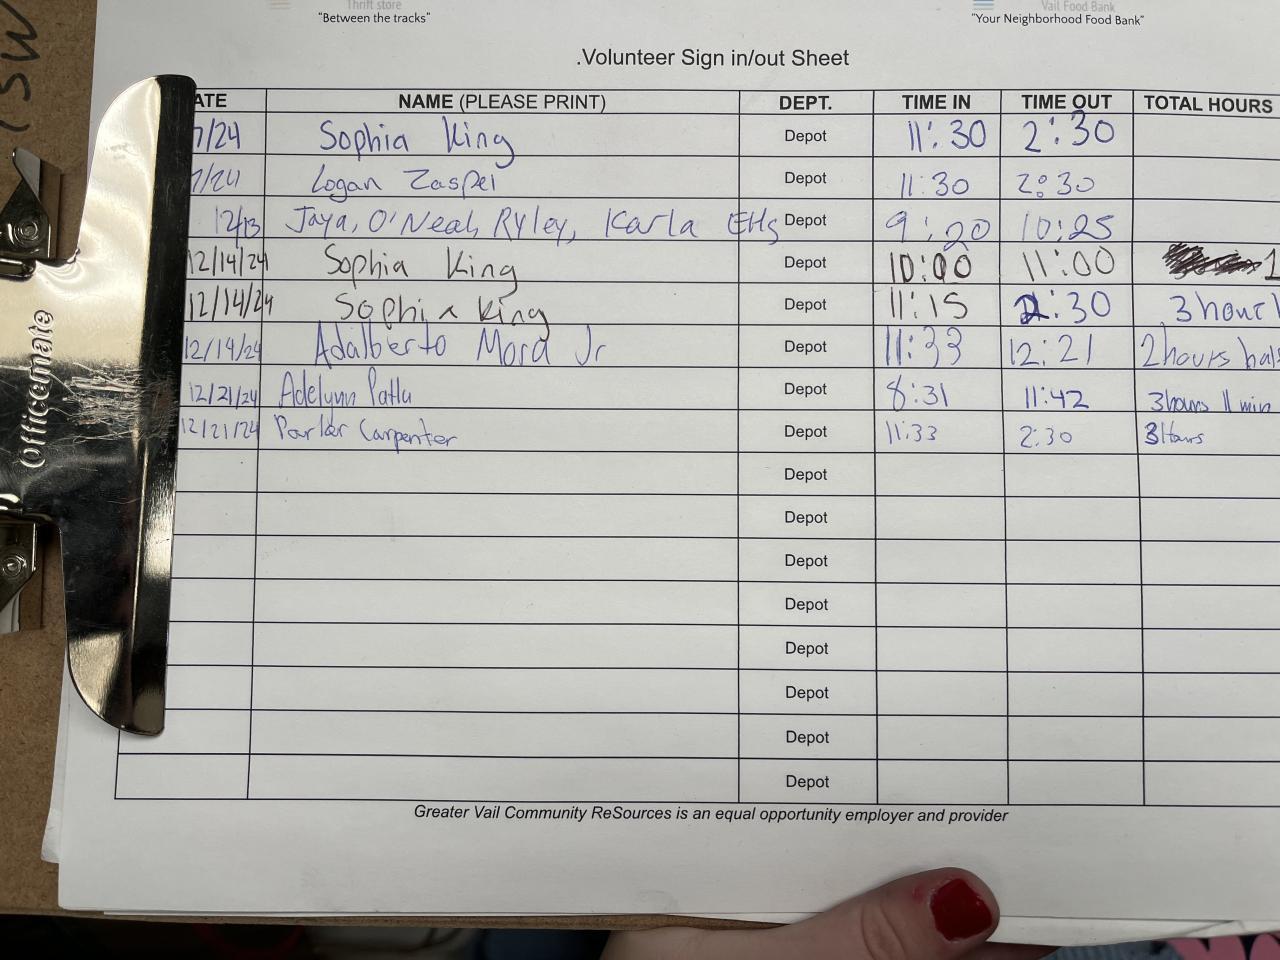 Thrift store
"Between the tracks"
Vail Food Bank
"Your Neighborhood Food Bank"
.Volunteer Sign in/out Sheet
ATE NAME (PLEASE PRINT) DEPT. TIME IN TIME OUT TOTAL HOURS
7/24 Sophia King Depot 11:30 2:30
7/24 Logan Zaspel Depot 11:30 2:30
12/13 Jaya, O'Neal, Ryley, Karla EHs Depot 9:20 10:25
12/14/24 Sophia King Depot 10:00 11:00 1
12/14/24 Sophia King Depot 11:15 2:30 3 hour
12/14/24 Adalberto Mora Jr Depot 11:33 12:21 2 hours hal
12/21/24 Adelynn Patla Depot 8:31 11:42 3 hours 11 min
12/21/24 Parker Carpenter Depot 11:33 2:30 3 Hours
Depot
Depot
Depot
Depot
Depot
Depot
Depot
Depot
Greater Vail Community ReSources is an equal opportunity employer and provider
Officemate